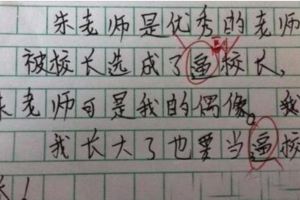 朱老师是优秀的老师
被校长选成了逼校长,
朱老师可是我的偶像。我
我长大了也要当逼校
长!